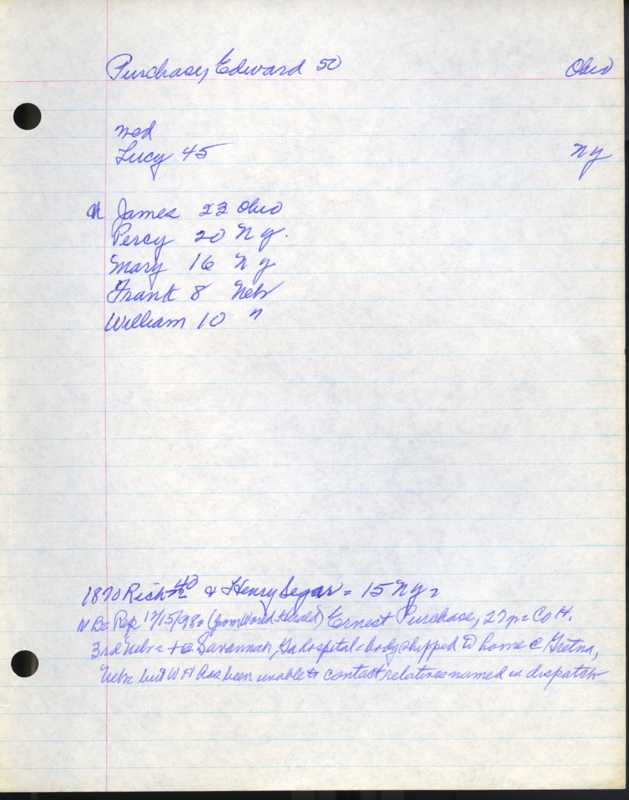 Purchase, Edward 50 Ohio
Lucy 45 NY
James 22 Ohio
Percy 20 NY.
Mary 16 NY
Frank 8 Nebr
William 10 "
1870 Rich 40 & Henry Segar = 15 NY
Rep 12/15/98 = (from World-Herald) Ernest Purchase, 27 Co H.
3rd Nebr = Savannah, Ga hospital = body shipped home @ Gretna,
Nebr but WH has been unable to contact relatives named in dispatch